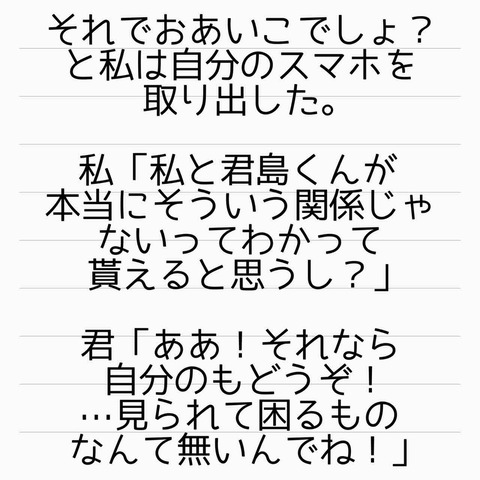 それでおあいこでしょ？
と私は自分のスマホを
取り出した。
私「私と君島くんが
本当にそういう関係じゃ
ないってわかって
貰えると思うし？」
君「ああ！それなら
自分のもどうぞ！
…見られて困るもの
なんて無いんでね！」